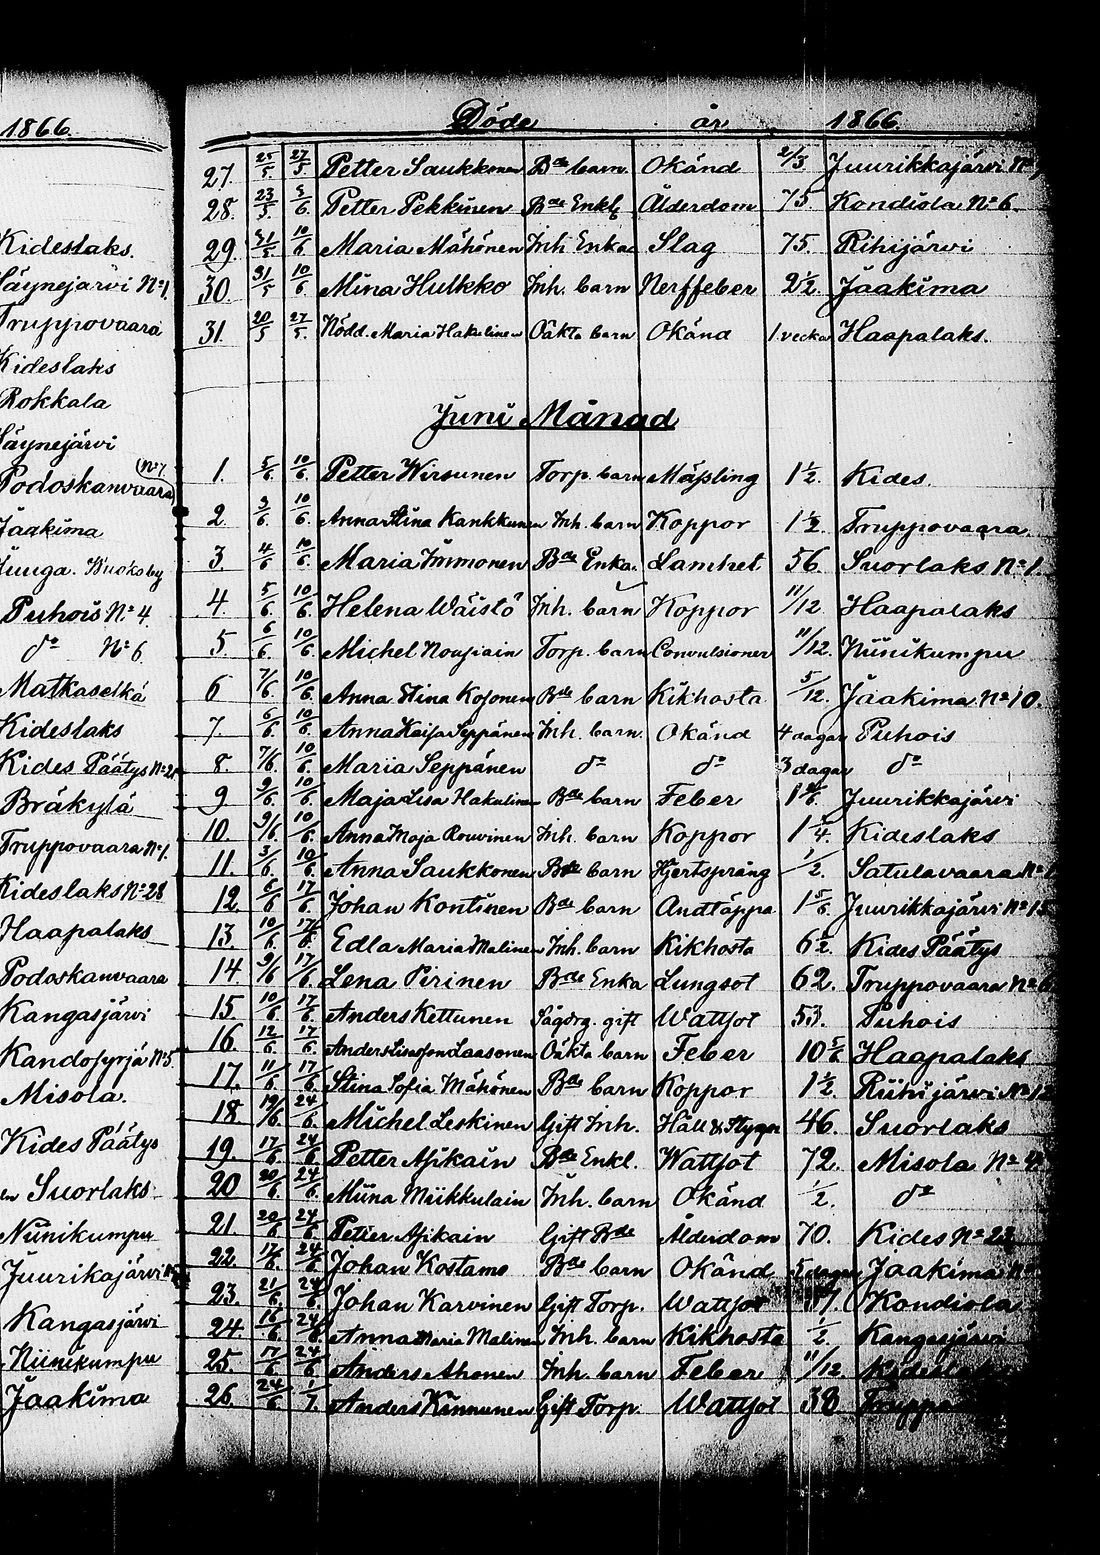 1866.
Kideslaks.
Häynejärvi No 1.
Truppovaara
Kideslaks
Rokkala
Häynejärvi
(No 7.
Podoskanvaara)
Jaakima
Puhois No 4.
do No 6.
Matkaselkä
Kideslaks
Kides Päätys No 2
Bräkylä
Truppovaara No 1.
Kideslaks No 28
Haapalaks
Podoskanvaara
Kangasjärvi
No 5.
Misola.
Kides Päätys
Suorlaks
Niinikumpu
Juurikajärvi
Kangasjärvi
Niinikumpu
Jaakima
Döde år 1866.
27. 25/5. 27/5. Petter Saukkonen Bde barn. Okänd 2/3. Juurikkajärvi No
28. 23/5 3/6. Petter Pekkinen Bde Enkl. Ålderdom 75. Kondiola No 6.
29. 31/5 10/6 Maria Mähönen Inh. Enka Slag 75. Rihijärvi
30. 31/5 10/6 Mina Hulkko Inh. barn Nerffeber 2 1/2. Jaakima
31. 20/5 27/5. Nödd. Maria Hakulinen Oäkta barn Okänd 1. vecka Haapalaks.
Juni Månad
1. 5/6. 10/6. Petter Wirsunen Torp. barn Mäßling 1 1/2. Kides.
2. 3/6. 10/6. Anna Stina Kankkunen Inh. barn Koppor 1 1/2. Truppovaara.
3. 4/6. 10/6. Maria Immonen Bde Enka. Lamhet 56. Suorlaks No 1.
4. 5/6. 10/6. Helena Wäistö Inh. barn Koppor 11/12. Haapalaks
5. 6/6. 10/6. Michel Nousiain Torp. barn Convulsioner 11/12. Niinikumpu
6 7/6. 10/6. Anna Stina Kosonen Bde barn Kikhosta 5/12. Jaakima No 10.
7. 6/6. 10/6. Anna Kaisa Seppänen Inh. barn. Okänd 4 dagar Puhois
8. 7/6. 10/6. Maria Seppänen do do 3 dagar do
9 9/6. 10/6. Maja Lisa Hakulinen Bde barn Feber 1 Juurikkajärvi
10. 9/6 10/6. Anna Maja Rouvinen Inh. barn Koppor 1 1/4. Kideslaks
11. 3/6. 10/6. Anna Saukkonen Bde barn Hjertsprång 1/2. Satulavaara No
12. 6/6 17/6 Johan Kontinen Bde barn Andtäppa 1 5/6. Juurikkajärvi No 15
13. 10/6 17/6. Edla Maria Malinen Inh. barn Kikhosta 6 1/2. Kides Päätys
14. 9/6 17/6. Lena Pirinen Bde Enka Lungsot 62. Truppovaara No 6
15. 10/6 17/6. Anders Kettunen gift Wattsot 53. Puhois
16. 12/6. 17/6. Anders Laasonen Oäkta barn Feber 10 5/6. Haapalaks
17. 11/6 17/6. Stina Sofia Mähönen Bde barn Koppor 1 1/2. Riihijärvi No 12
18. 19/6 24/6. Michel Leskinen Gift Inh. Håll & Stygn 46. Suorlaks
19. 17/6 24/6. Petter Asikain Bde Enkl. Wattsot 72. Misola No
20 20/6 24/6. Miina Miikkulain Inh. barn Okänd 1/2. do
21. 20/6 24/6. Petter Asikain Gift Bde Ålderdom 70. Kides No 22
22. 17/6. 24/6. Johan Kostamo Bde barn Okänd 5 dagar Jaakima No
23. 21/6. 24/6. Johan Karvinen Gift Torp. Wattsot Kondiola
24. 16/6. 24/6. Anna Maria Malinen Inh. barn Kikhosta 1/2. Kangasjärvi
25. 17/6. 24/6. Anders Ahonen Inh. barn Feber 11/12
26. 24/6 1/7. Anders Kinnunen Gift Torp. Wattsot 38.